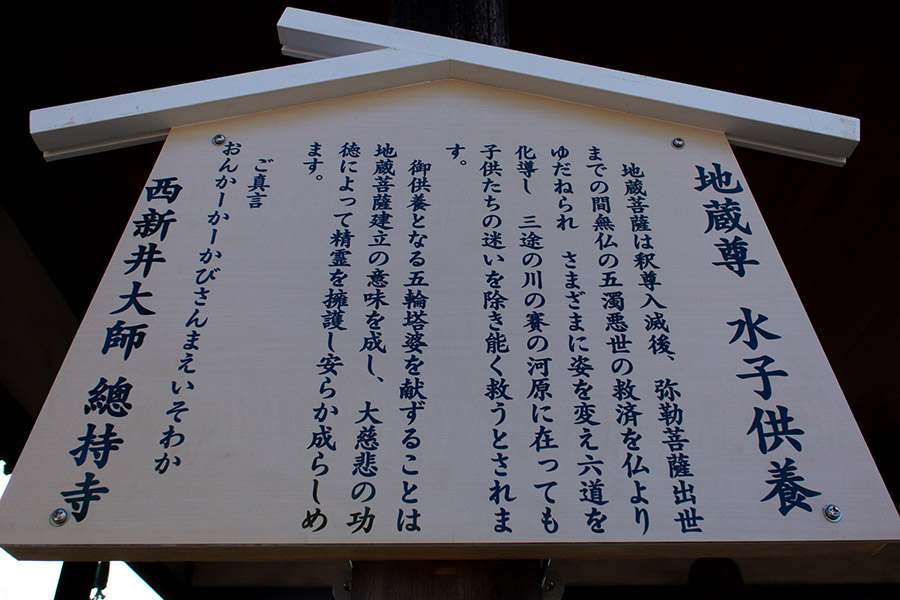 地蔵尊 水子供養
地蔵菩薩は釈尊入滅後、弥勒菩薩出世
までの間無仏の五濁悪世の救済を仏より
ゆだねられ さまざまに姿を変え六道を
化導し 三途の川の賽の河原に在っても
子供たちの迷いを除き能く救うとされま
す。
御供養となる五輪塔婆を献ずることは
地蔵菩薩建立の意味を成し、大慈悲の功
徳によって精霊を擁護し安らか成らしめ
ます。
ご真言
おんかーかーかびさんまえいそわか
西新井大師 總持寺